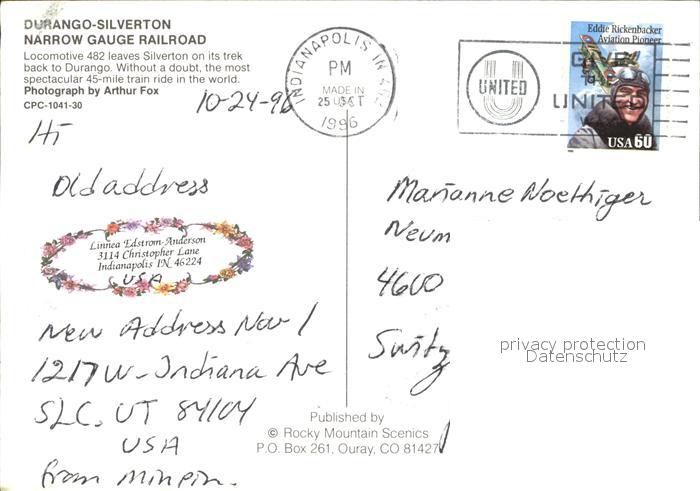 DURANGO-SILVERTON
NARROW GAUGE RAILROAD
Locomotive 482 leaves Silverton on its trek
back to Durango. Without a doubt, the most
spectacular 45-mile train ride in the world.
Photograph by Arthur Fox
CPC-1041-30
10-24-96
Hi
Old address
Linnea Edstrom-Anderson
3114 Christopher Lane
Indianapolis IN 46224
USA
New Address Nov 1
1217 W- Indiana Ave
SLC, UT 84104
USA
from
INDIANAPOLIS IN
PM
MADE IN
25 USA
1996
UNITED
GIVE
UNITED
Eddie Rickenbacker
Aviation Pioneer
USA 60
Marianne Noethiger
4600
privacy protection
Datenschutz
Published by
© Rocky Mountain Scenics
P.O. Box 261, Ouray, CO 81427